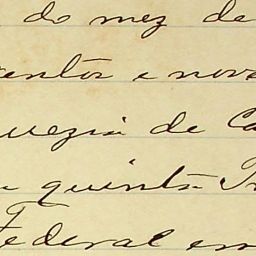 do mez de
entos e nove
guezia de Ca
quinta Pr
Federal em